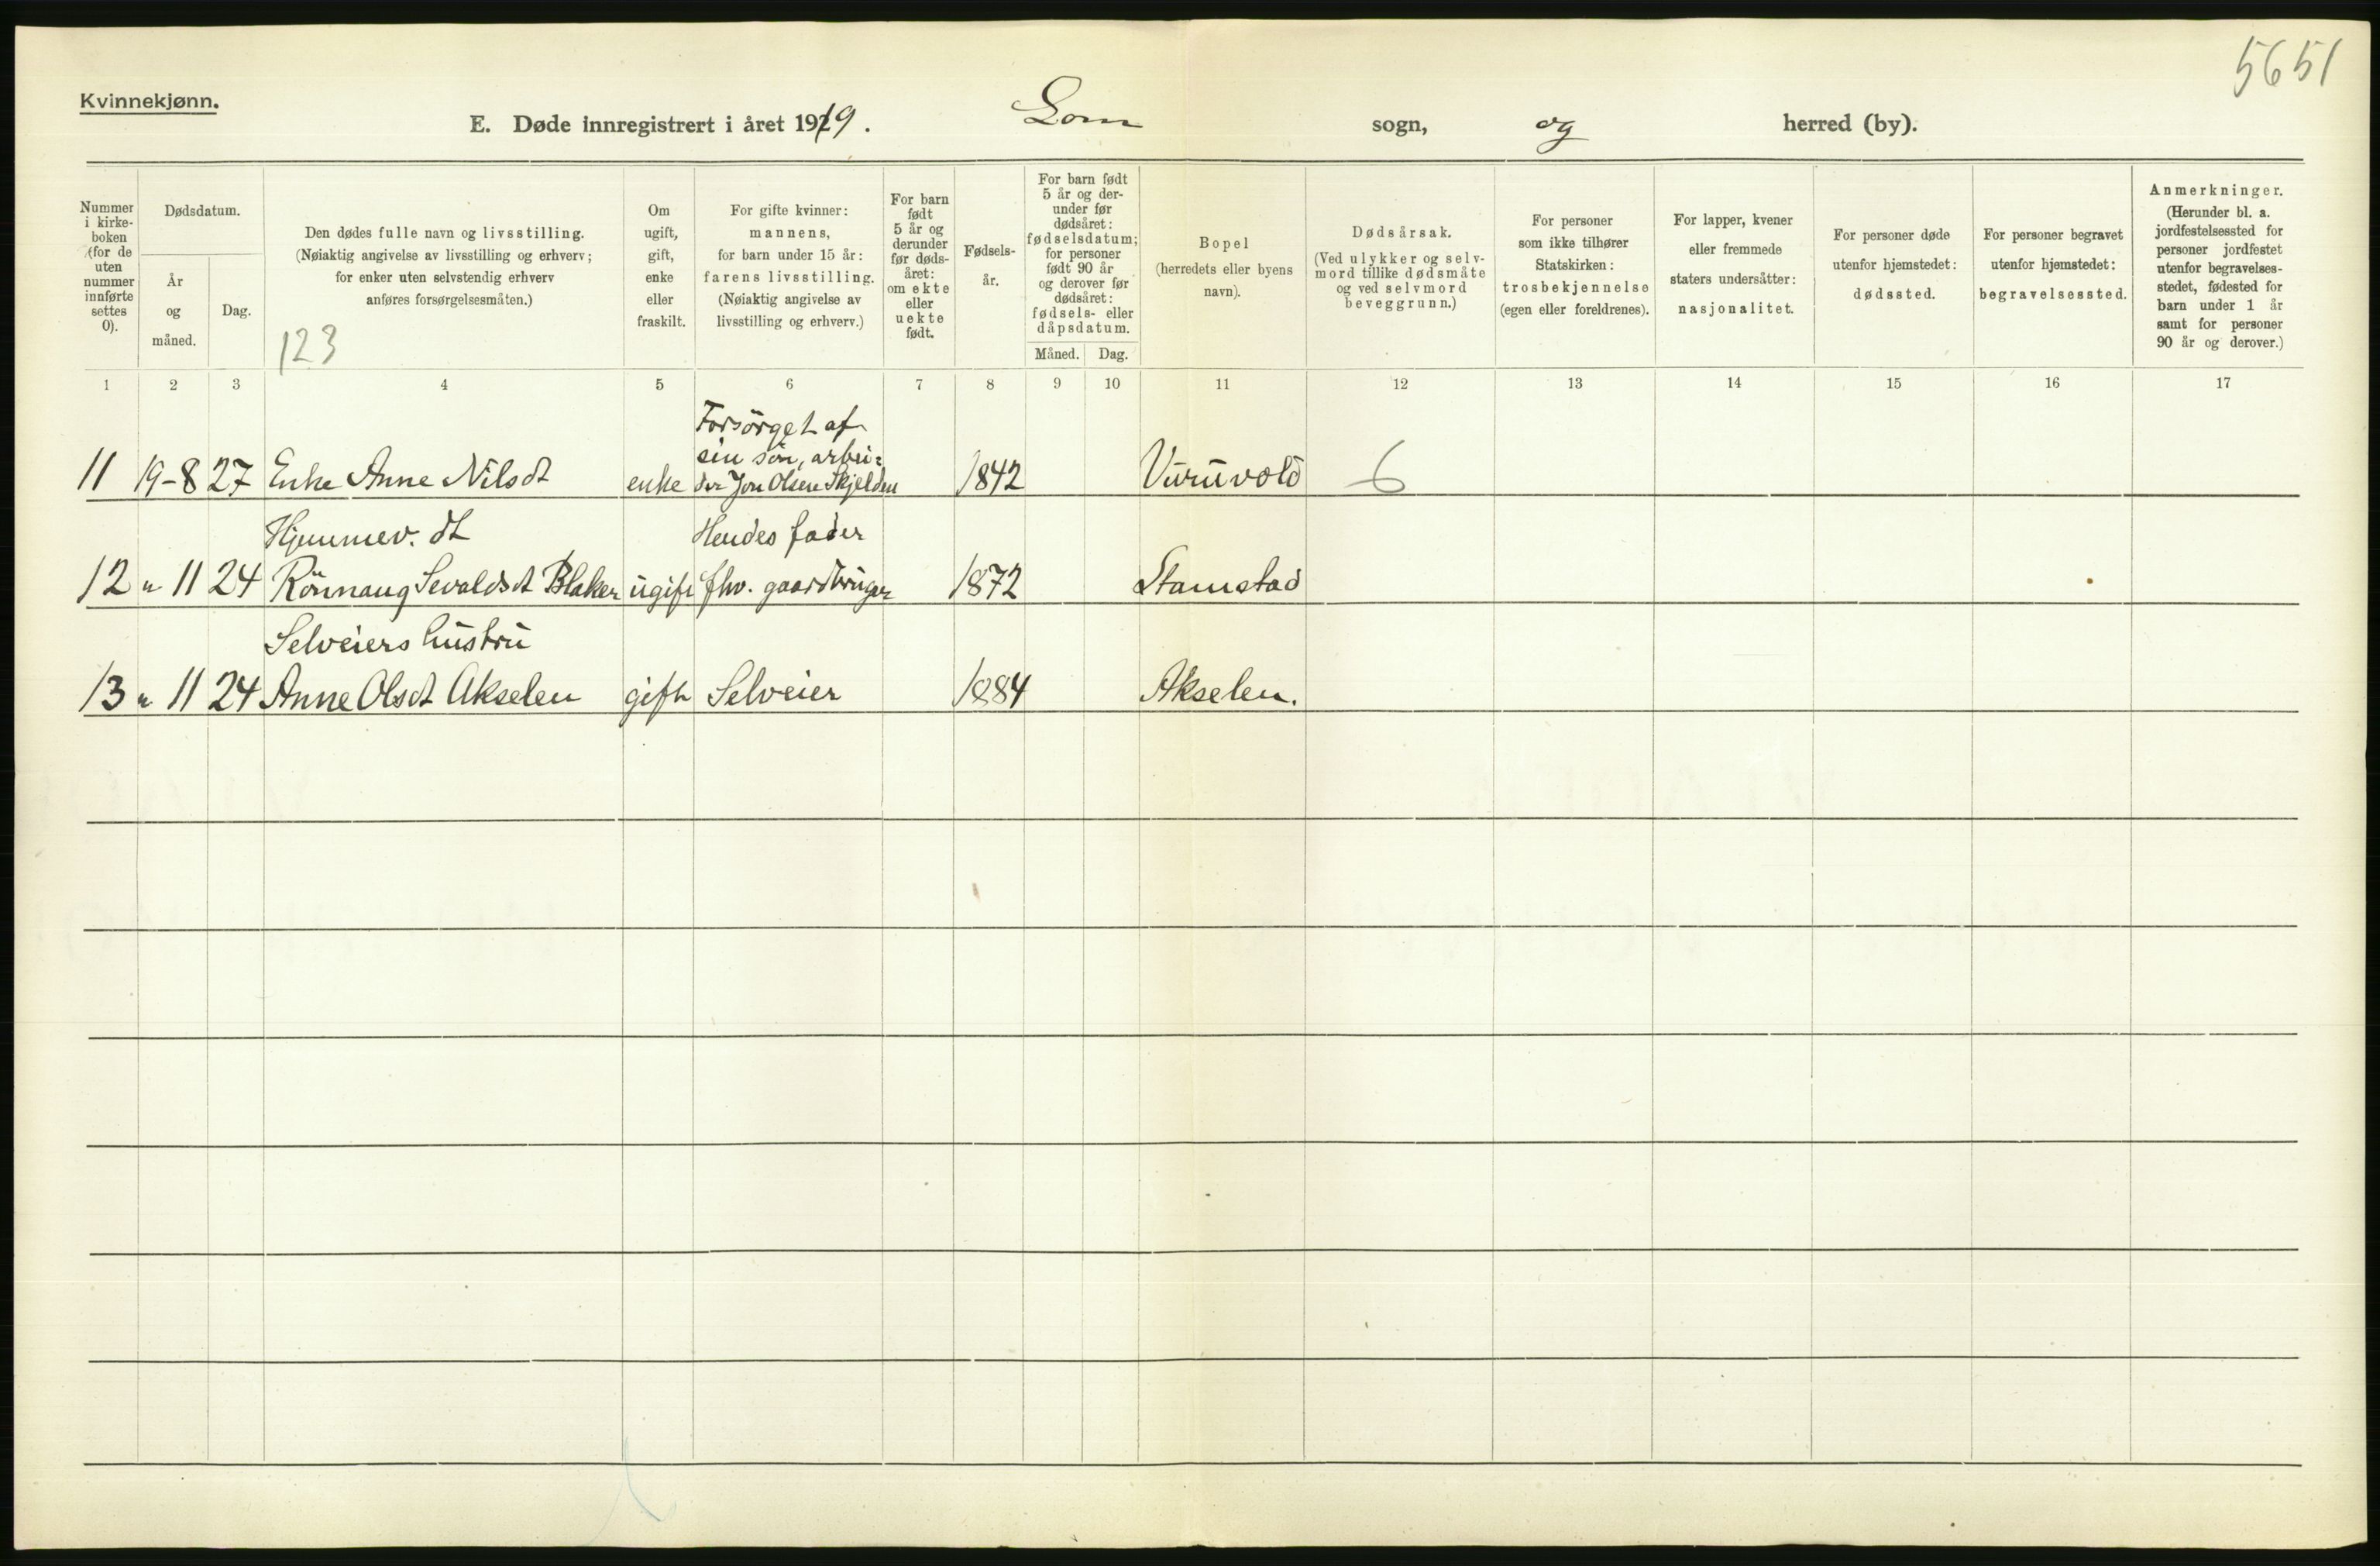 5651
Kvinnekjønn.
E. Døde innregistrert i året 1919. Lom sogn, og herred (by).
Nummer i kirke-boken (for de uten nummer innførte settes 0).
Dødsdatum.
År og måned.
Dag.
Den dødes fulle navn og livsstilling.
(Nøiaktig angivelse av livsstilling og erhverv;
for enker uten selvstendig erhverv
anføres forsørgelsesmåten.)
123
Om ugift, gift, enke eller fraskilt.
For gifte kvinner:
mannens,
for barn under 15 år:
farens livsstilling.
(Nøiaktig angivelse av
livsstilling og erhverv.)
For barn født 5 år og derunder før døds-året: om ekte eller uekte født.
Fødsels-år.
For barn født 5 år og der-under før dødsåret: fødselsdatum; for personer født 90 år og derover før dødsåret: fødsels- eller dåpsdatum.
Måned. Dag.
Bopel
(herredets eller byens
navn).
Dødsårsak.
(Ved ulykker og selv-
mord tillike dødsmåte
og ved selvmord
beveggrunn.)
For personer
som ikke tilhører
Statskirken:
trosbekjennelse
(egen eller foreldrenes).
For lapper, kvener
eller fremmede
staters undersåtter:
nasjonalitet.
For personer døde
utenfor hjemstedet:
dødssted.
For personer begravet
utenfor hjemstedet:
begravelsessted.
Anmerkninger.
(Herunder bl. a.
jordfestelsessted for
personer jordfestet
utenfor begravelses-
stedet, fødested for
barn under 1 år
samt for personer
90 år og derover.)
1 2 3 4 5 6 7 8 9 10 11 12 13 14 15 16 17
Forsörget af
sin sön, arbei=
11 19-8 27 Enke Anne Nilsdt enke der Jon Olsen Skjelden 1842 Vuruvold 6
Hjemmev. dt Hendes fader
12 " 11 24 Rönnaug Sevaldsdt Blaker ugift fhv. gaardbruger 1872 Stamstad
Selveiers hustru
13 " 11 24 Anne Olsdt Akselen gift Selveier 1884 Akselen.